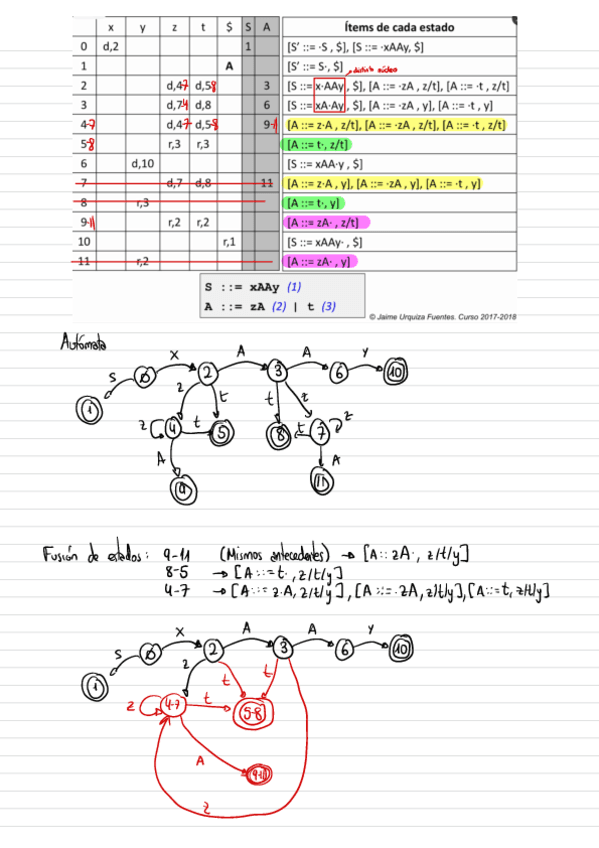 x y z t $ S A Ítems de cada estado
0 d,2 1 [S' ::= ·S , $], [S ::= ·xAAy, $]
1 A [S' ::= S·, $] distinto núcleo
2 d,47 d,58 3 [S ::= x·AAy , $], [A ::= ·zA , z/t], [A ::= ·t , z/t]
3 d,74 d,8 6 [S ::= xA·Ay , $], [A ::= ·zA , y], [A ::= ·t , y]
4-7 d,47 d,58 9-11 [A ::= z·A , z/t], [A ::= ·zA , z/t], [A ::= ·t , z/t]
5-8 r,3 r,3 [A ::= t· , z/t]
6 d,10 [S ::= xAA·y , $]
7 d,7 d,8 11 [A ::= z·A , y], [A ::= ·zA , y], [A ::= ·t , y]
8 r,3 [A ::= t· , y]
9-11 r,2 r,2 [A ::= zA· , z/t]
10 r,1 [S ::= xAAy· , $]
11 r,2 [A ::= zA· , y]
S ::= xAAy (1)
A ::= zA (2) | t (3)
© Jaime Urquiza Fuentes. Curso 2017-2018
Autómata
S X A A Y
1 0 2 3 6 10
z t t z
z 4 t 5 8 t 7 z
A A
9 11
Fusión de estados: 9-11 (Mismos antecedentes) → [A:: zA·, z/t/y]
8-5 → [A::=t·, z/t/y]
4-7 → [A::=z·A, z/t/y], [A::=·zA, z/t/y], [A::=·t, z/t/y]
S X A A Y
1 0 2 3 6 10
z t t
z 4-7 t 5-8
A 9-11
z